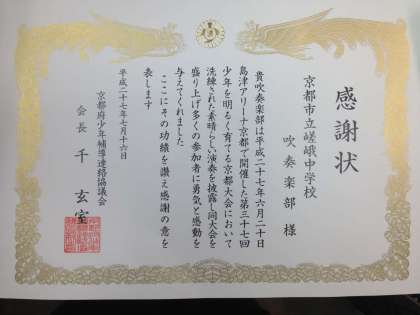 感謝状
京都市立嵯峨中学校
吹奏楽部 様
貴吹奏楽部は平成二十七年六月二十日
島津アリーナ京都で開催した第三十七回
少年を明るく育てる京都大会において
洗練された素晴らしい演奏を披露し同大会を
盛り上げ多くの参加者に勇気と感動を
与えてくれました
ここにその功績を讃え感謝の意を
表します
平成二十七年七月十六日
京都府少年補導連絡協議会
会長 千 玄室